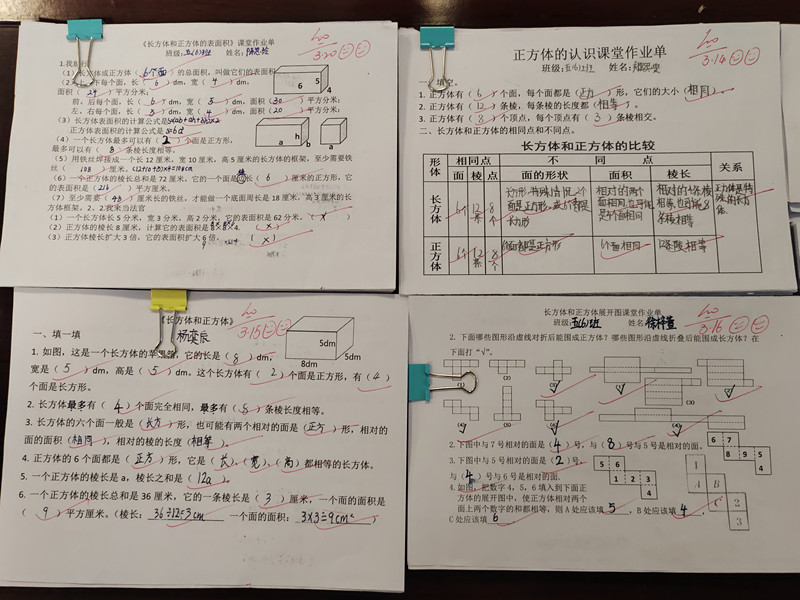 《长方体和正方体的表面积》课堂作业单
班级:五(6)班 姓名:
3.20
(1)长方体或正方体(6个面)的总面积,叫做它们的表面积
6 5 4
面积(24)平方分米;
前、后每个面,长(6)dm,宽(5)dm,面积(30)平方分米;
左、右每个面,长(5)dm,宽(4)dm,面积(20)平方分米;
(3)长方体表面积的计算公式是
正方体表面积的计算公式是
a h b a
(4)一个长方体最多可以有(2)个面是正方形,
最多可以有(8)条棱长度相等。
(5)用铁丝焊接成一个长12厘米,宽10厘米,高5厘米的长方体的框架,至少需要铁
丝(108)厘米。(12+10+5)×4=108cm
(6)一个正方体的棱长总和是72厘米,它的一个面是边长(6)厘米的正方形,它
的表面积是(216)平方厘米。
(7)至少需要(48)厘米长的铁丝,才能做一个底面周长是18厘米,高3厘米的长
方体框架。2、2.我来当法官
(1)一个长方体长5分米,宽3分米,高2分米,它的表面积是62分米。(×)
(2)正方体的棱长8厘米,计算它的表面积是
(×)
(3)正方体棱长扩大3倍,它的表面积扩大6倍。(×)
正方体的认识课堂作业单
班级:五(6)班 姓名:
3.14
填空。
1. 正方体有(6)个面,每个面都是(正方)形,它们的大小(相同)
2. 正方体有(12)条棱,每条棱的长度都(相等)。
3. 正方体有(8)个顶点,每个顶点有(3)条棱相交。
二、长方体和正方体的相同点和不同点。
长方体和正方体的比较
形体 相同点 不同点 关系
面 棱 点 面的形状 面积 棱长
长方体 6个 12条 8个
正方体 6个 12条 8个 6个面都是正方形 6个面相同 12条棱相等
《长方体和正方体》
杨奕辰
3.15
一、填一填
5dm
5dm
8dm
1. 如图,这是一个长方体的苹果箱,它的长是(8)dm,
宽是(5)dm,高是(5)dm。这个长方体有(2)个面是正方形,有(4)
个面是长方形。
2. 长方体最多有(4)个面完全相同,最多有(5)条棱长度相等。
3. 长方体的六个面一般是(长方)形,也可能有两个相对的面是(正方)形,相对的
面的面积(相同),相对的棱的长度(相等)。
4. 正方体的6个面都是(正方)形,它是(长)、(宽)、(高)都相等的长方体。
5. 一个正方体的棱长是a,棱长之和是(12a)。
6. 一个正方体的棱长总和是36厘米,它的一条棱长是(3)厘米,一个面的面积是
(9)平方厘米。(棱长:36÷12=3cm 一个面的面积:3×3=9cm²)
长方体和正方体展开图课堂作业单
班级:五(6)班 姓名:
3.16
2. 下面哪些图形沿虚线对折后能围成正方体?哪些图形沿虚线折叠后能围成长方体?在
下面打“√”。
(1) (2) (3)
2.下图中与7号相对的面是(4)号,与(8)号与5号是相对的面。
6 7
8 9 5
4
3.下图中与5号相对的面是(2)号,
与(4)号与6号是相对的面.
5 6
1 2 3
4
4.如图,把数字4,5,6填入到下面正
方体的展开图中,使正方体相对两个
面上两个数字的和都相等,则A处应该填5,B处应该填4,
C处应该填6
1
A B
2
3